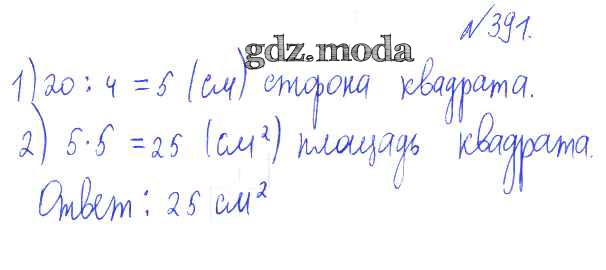 №391.
gdz.moda
1) 20 : 4 = 5 (см) сторона квадрата.
2) 5·5 = 25 (см²) площадь квадрата.
Ответ: 25 см²